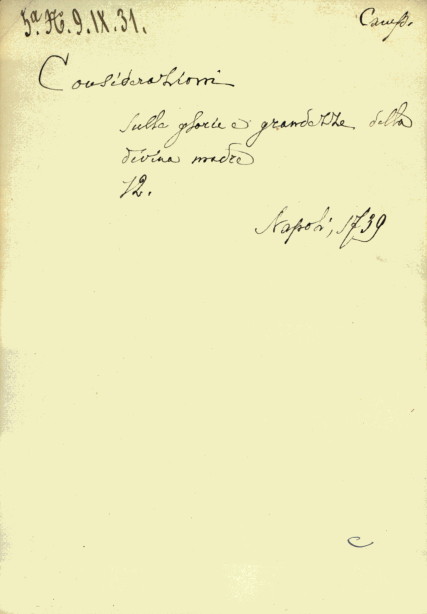 5ª.A.9.IX.31.
Camp.
Considerazioni
sulle glorie e grandezze della
divina madre
12.
Napoli, 1739
c